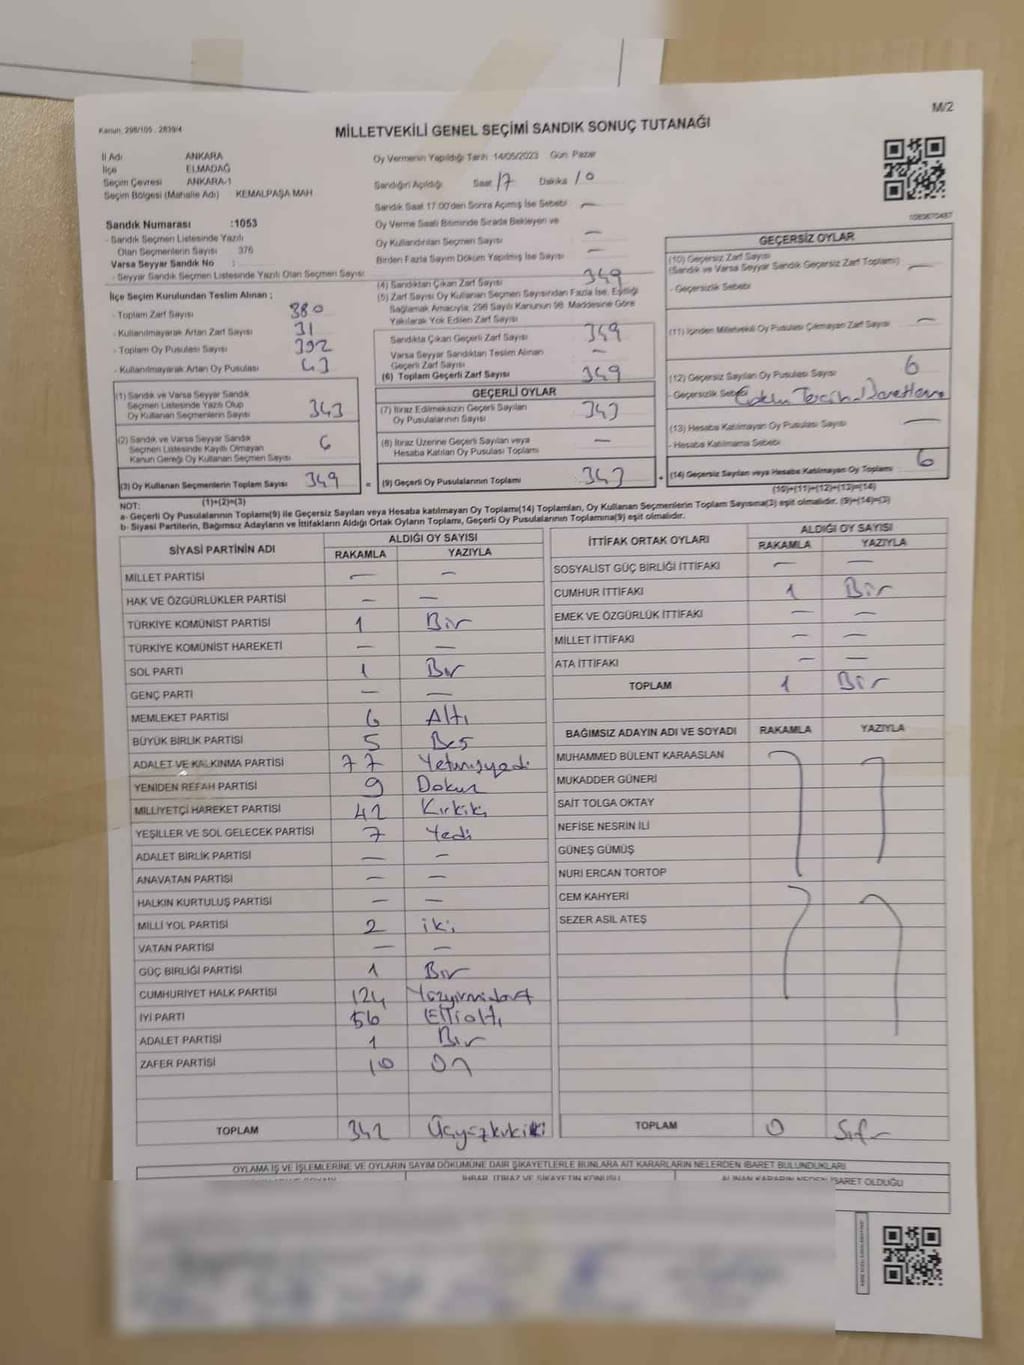 M/2
Kanun: 298/105 - 2839/4
MİLLETVEKİLİ GENEL SEÇİMİ SANDIK SONUÇ TUTANAĞI
İl Adı ANKARA
İlçe ELMADAĞ
Seçim Çevresi ANKARA-1
Seçim Bölgesi (Mahalle Adı) KEMALPAŞA MAH
Oy Vermenin Yapıldığı Tarih :14/05/2023 Gün: Pazar
Sandığın Açıldığı Saat 17 Dakika 10
Sandık Saat 17:00'den Sonra Açılmış İse Sebebi —
Oy Verme Saati Bitiminde Sırada Bekleyen ve
Oy Kullandırılan Seçmen Sayısı —
Birden Fazla Sayım Döküm Yapılmış İse Sayısı —
Sandık Numarası :1053
- Sandık Seçmen Listesinde Yazılı
Olan Seçmenlerin Sayısı 376
Varsa Seyyar Sandık No :
- Seyyar Sandık Seçmen Listesinde Yazılı Olan Seçmen Sayısı:
İlçe Seçim Kurulundan Teslim Alınan ;
- Toplam Zarf Sayısı 380
- Kullanılmayarak Artan Zarf Sayısı 31
- Toplam Oy Pusulası Sayısı 392
- Kullanılmayarak Artan Oy Pusulası 43
(1) Sandık ve Varsa Seyyar Sandık
Seçmen Listesinde Yazılı Olup
Oy Kullanan Seçmenlerin Sayısı 343
(2) Sandık ve Varsa Seyyar Sandık
Seçmen Listesinde Kayıtlı Olmayan
Kanun Gereği Oy Kullanan Seçmen Sayısı 6
(3) Oy Kullanan Seçmenlerin Toplam Sayısı 349
(1)+(2)=(3)
(4) Sandıktan Çıkan Zarf Sayısı 349
(5) Zarf Sayısı Oy Kullanan Seçmen Sayısından Fazla İse, Eşitliği
Sağlamak Amacıyla, 298 Sayılı Kanunun 98. Maddesine Göre
Yakılarak Yok Edilen Zarf Sayısı
Sandıkta Çıkan Geçerli Zarf Sayısı 349
Varsa Seyyar Sandıktan Teslim Alınan
Geçerli Zarf Sayısı —
(6) Toplam Geçerli Zarf Sayısı 349
GEÇERLİ OYLAR
(7) İtiraz Edilmeksizin Geçerli Sayılan
Oy Pusulalarının Sayısı 343
(8) İtiraz Üzerine Geçerli Sayılan veya
Hesaba Katılan Oy Pusulası Toplamı —
= (9) Geçerli Oy Pusulalarının Toplamı 343 +
GEÇERSİZ OYLAR
(10) Geçersiz Zarf Sayısı
(Sandık ve Varsa Seyyar Sandık Geçersiz Zarf Toplamı) —
- Geçersizlik Sebebi
(11) İçinden Milletvekili Oy Pusulası Çıkmayan Zarf Sayısı —
(12) Geçersiz Sayılan Oy Pusulası Sayısı 6
- Geçersizlik Sebebi
(13) Hesaba Katılmayan Oy Pusulası Sayısı —
- Hesaba Katılmama Sebebi
(14) Geçersiz Sayılan veya Hesaba Katılmayan Oy Toplamı 6
(10)+(11)+(12)+(13)=(14)
NOT:
a- Geçerli Oy Pusulalarının Toplamı(9) ile Geçersiz Sayılan veya Hesaba katılmayan Oy Toplamı(14) Toplamları, Oy Kullanan Seçmenlerin Toplam Sayısına(3) eşit olmalıdır. (9)+(14)=(3)
b- Siyasi Partilerin, Bağımsız Adayların ve İttifakların Aldığı Ortak Oyların Toplamı, Geçerli Oy Pusulalarının Toplamına(9) eşit olmalıdır.
SİYASİ PARTİNİN ADI ALDIĞI OY SAYISI
RAKAMLA YAZIYLA
MİLLET PARTİSİ — —
HAK VE ÖZGÜRLÜKLER PARTİSİ — —
TÜRKİYE KOMÜNİST PARTİSİ 1 Bir
TÜRKİYE KOMÜNİST HAREKETİ — —
SOL PARTİ 1 Bir
GENÇ PARTİ — —
MEMLEKET PARTİSİ 6 Altı
BÜYÜK BİRLİK PARTİSİ 5 Beş
ADALET VE KALKINMA PARTİSİ 77 Yetmişyedi
YENİDEN REFAH PARTİSİ 9 Dokuz
MİLLİYETÇİ HAREKET PARTİSİ 42 Kırkiki
YEŞİLLER VE SOL GELECEK PARTİSİ 7 Yedi
ADALET BİRLİK PARTİSİ — —
ANAVATAN PARTİSİ — —
HALKIN KURTULUŞ PARTİSİ — —
MİLLİ YOL PARTİSİ 2 iki
VATAN PARTİSİ — —
GÜÇ BİRLİĞİ PARTİSİ 1 Bir
CUMHURİYET HALK PARTİSİ 124 Yüzyirmidört
İYİ PARTİ 56 Ellialtı
ADALET PARTİSİ 1 Bir
ZAFER PARTİSİ 10 On
TOPLAM 342 Üçyüzkırkiki
İTTİFAK ORTAK OYLARI ALDIĞI OY SAYISI
RAKAMLA YAZIYLA
SOSYALİST GÜÇ BİRLİĞİ İTTİFAKI — —
CUMHUR İTTİFAKI 1 Bir
EMEK VE ÖZGÜRLÜK İTTİFAKI — —
MİLLET İTTİFAKI — —
ATA İTTİFAKI — —
TOPLAM 1 Bir
BAĞIMSIZ ADAYIN ADI VE SOYADI RAKAMLA YAZIYLA
MUHAMMED BÜLENT KARAASLAN
MUKADDER GÜNERİ
SAİT TOLGA OKTAY
NEFİSE NESRİN İLİ
GÜNEŞ GÜMÜŞ
NURİ ERCAN TORTOP
CEM KAHYERİ
SEZER ASIL ATEŞ
TOPLAM 0 Sıfır
OYLAMA İŞ VE İŞLEMLERİNE VE OYLARIN SAYIM DÖKÜMÜNE DAİR ŞİKAYETLERLE BUNLARA AİT KARARLARIN NELERDEN İBARET BULUNDUKLARI
İHBAR, İTİRAZ VE ŞİKAYETİN KONUSU ALINAN KARARIN NEDEN İBARET OLDUĞU